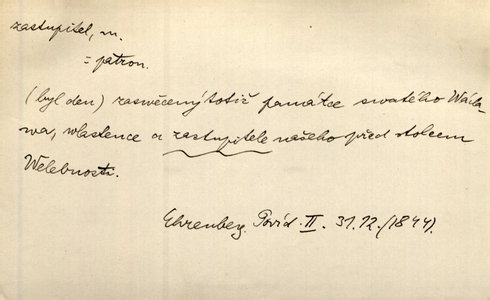 zastupitel, m.
= patron.
(byl den) zaswěcený totiž památce swatého Wácla-
wa, wlastence a zastupitele našeho před stolcem
Welebnosti.
Ehrenberg. Povíd. II. 31.12. (1844).